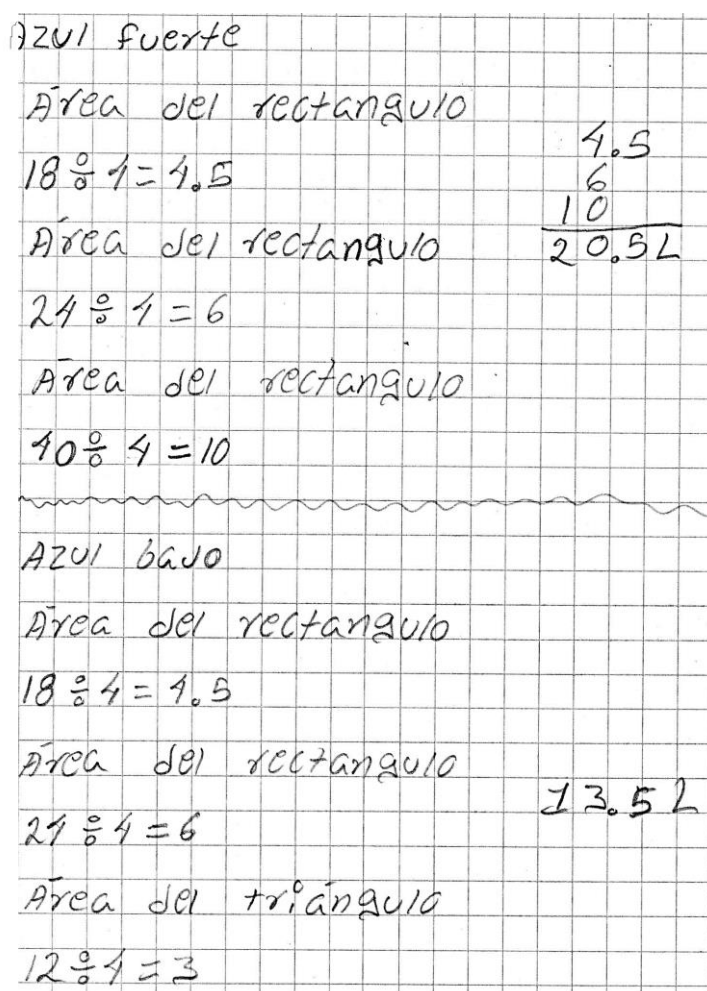 Azul fuerte
Área del rectangulo
18 ÷ 4 = 4.5
Área del rectangulo
24 ÷ 4 = 6
Área del rectangulo
40 ÷ 4 = 10
4.5
6
10
20.5L
Azul bajo
Área del rectangulo
18 ÷ 4 = 4.5
Área del rectangulo
24 ÷ 4 = 6
Área del triángulo
12 ÷ 4 = 3
13.5L